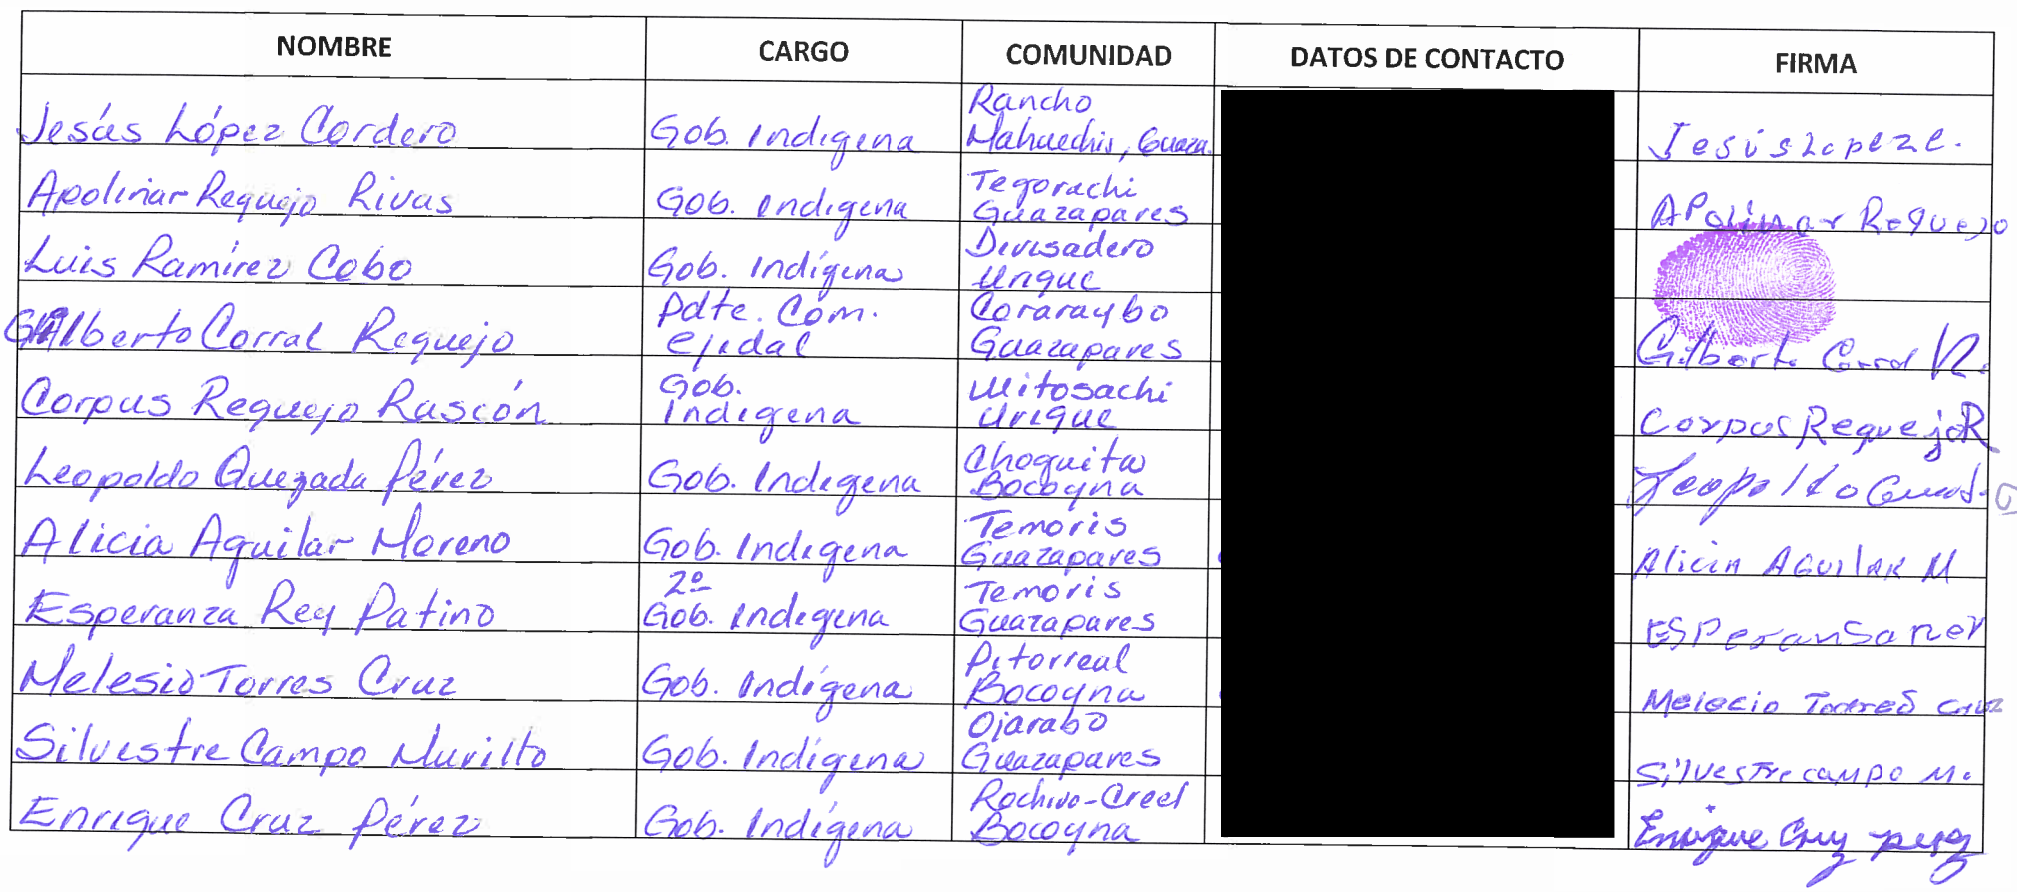 NOMBRE CARGO COMUNIDAD DATOS DE CONTACTO FIRMA
Jesús López Cordero Gob. Indígena Rancho
Mahuechis, Guaza. Jesús Lopeze.
Apolinar Requejo Rivas Gob. Indigena Tegorachi
Guazapares APolinar Requejo
Luis Ramírez Cobo Gob. Indígena Divisadero
Urique
Gilberto Corral Requejo Pdte. Com.
Ejidal
Cororaybo
Guazapares
Gilberto Corral R.
Corpus Requejo Rascón Gob.
Indigena
Mitosachi
Urique
Corpus Requejo R
Leopoldo Quezada Pérez Gob. Indigena Choguita
Bocoyna Leopoldo
Alicia Aguilar Moreno Gob. Indigena Temoris
Guazapares Alicia AGuilAR M
Esperanza Rey Patino 2º
Gob. Indigena
Temoris
Guazapares
ESPeranSa rey
Melesio Torres Cruz Gob. Indígena Pitorreal
Bocoyna Melecio Torres Cruz
Silvestre Campo Murillo Gob. Indígena Ojarabo
Guazapares Silvestre campo M.
Enrique Cruz Pérez Gob. Indígena Rochivo-Creel
Bocoyna Enrique Cruz perez